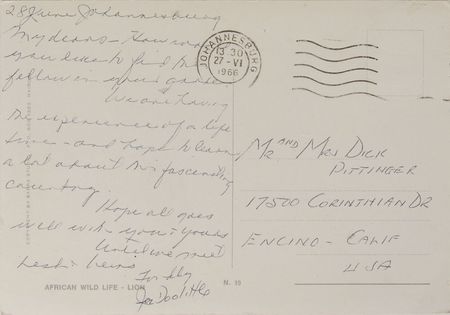 28 June Johannesburg
My dears - How would
you like to find this
fellow in your garden
We are having
the experience of a life
time - and hope to learn
a lot about this fascinating
country.
Hope all goes
well with you & yours
Until we meet
Fondly
Joe Doolittle
AFRICAN WILD LIFE - LION
N. 19
JOHANNESBURG
13 30
27 - VI
1966
MR AND MRS DICK
PITTINGER
17500 CORINTHIAN DR
ENCINO - CALIF
USA